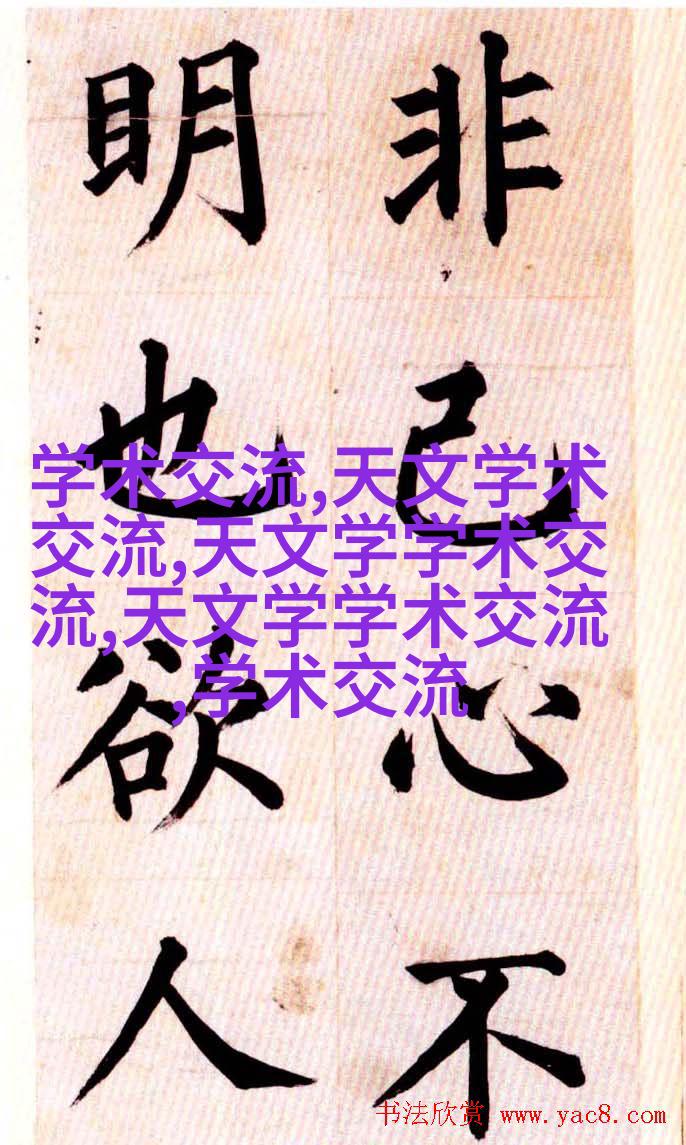 非己心不
明也欲人
学术交流,天文学术
交流,天文学学术交
流,天文学学术交流
,学术交流
书法欣赏 www.yac8.com